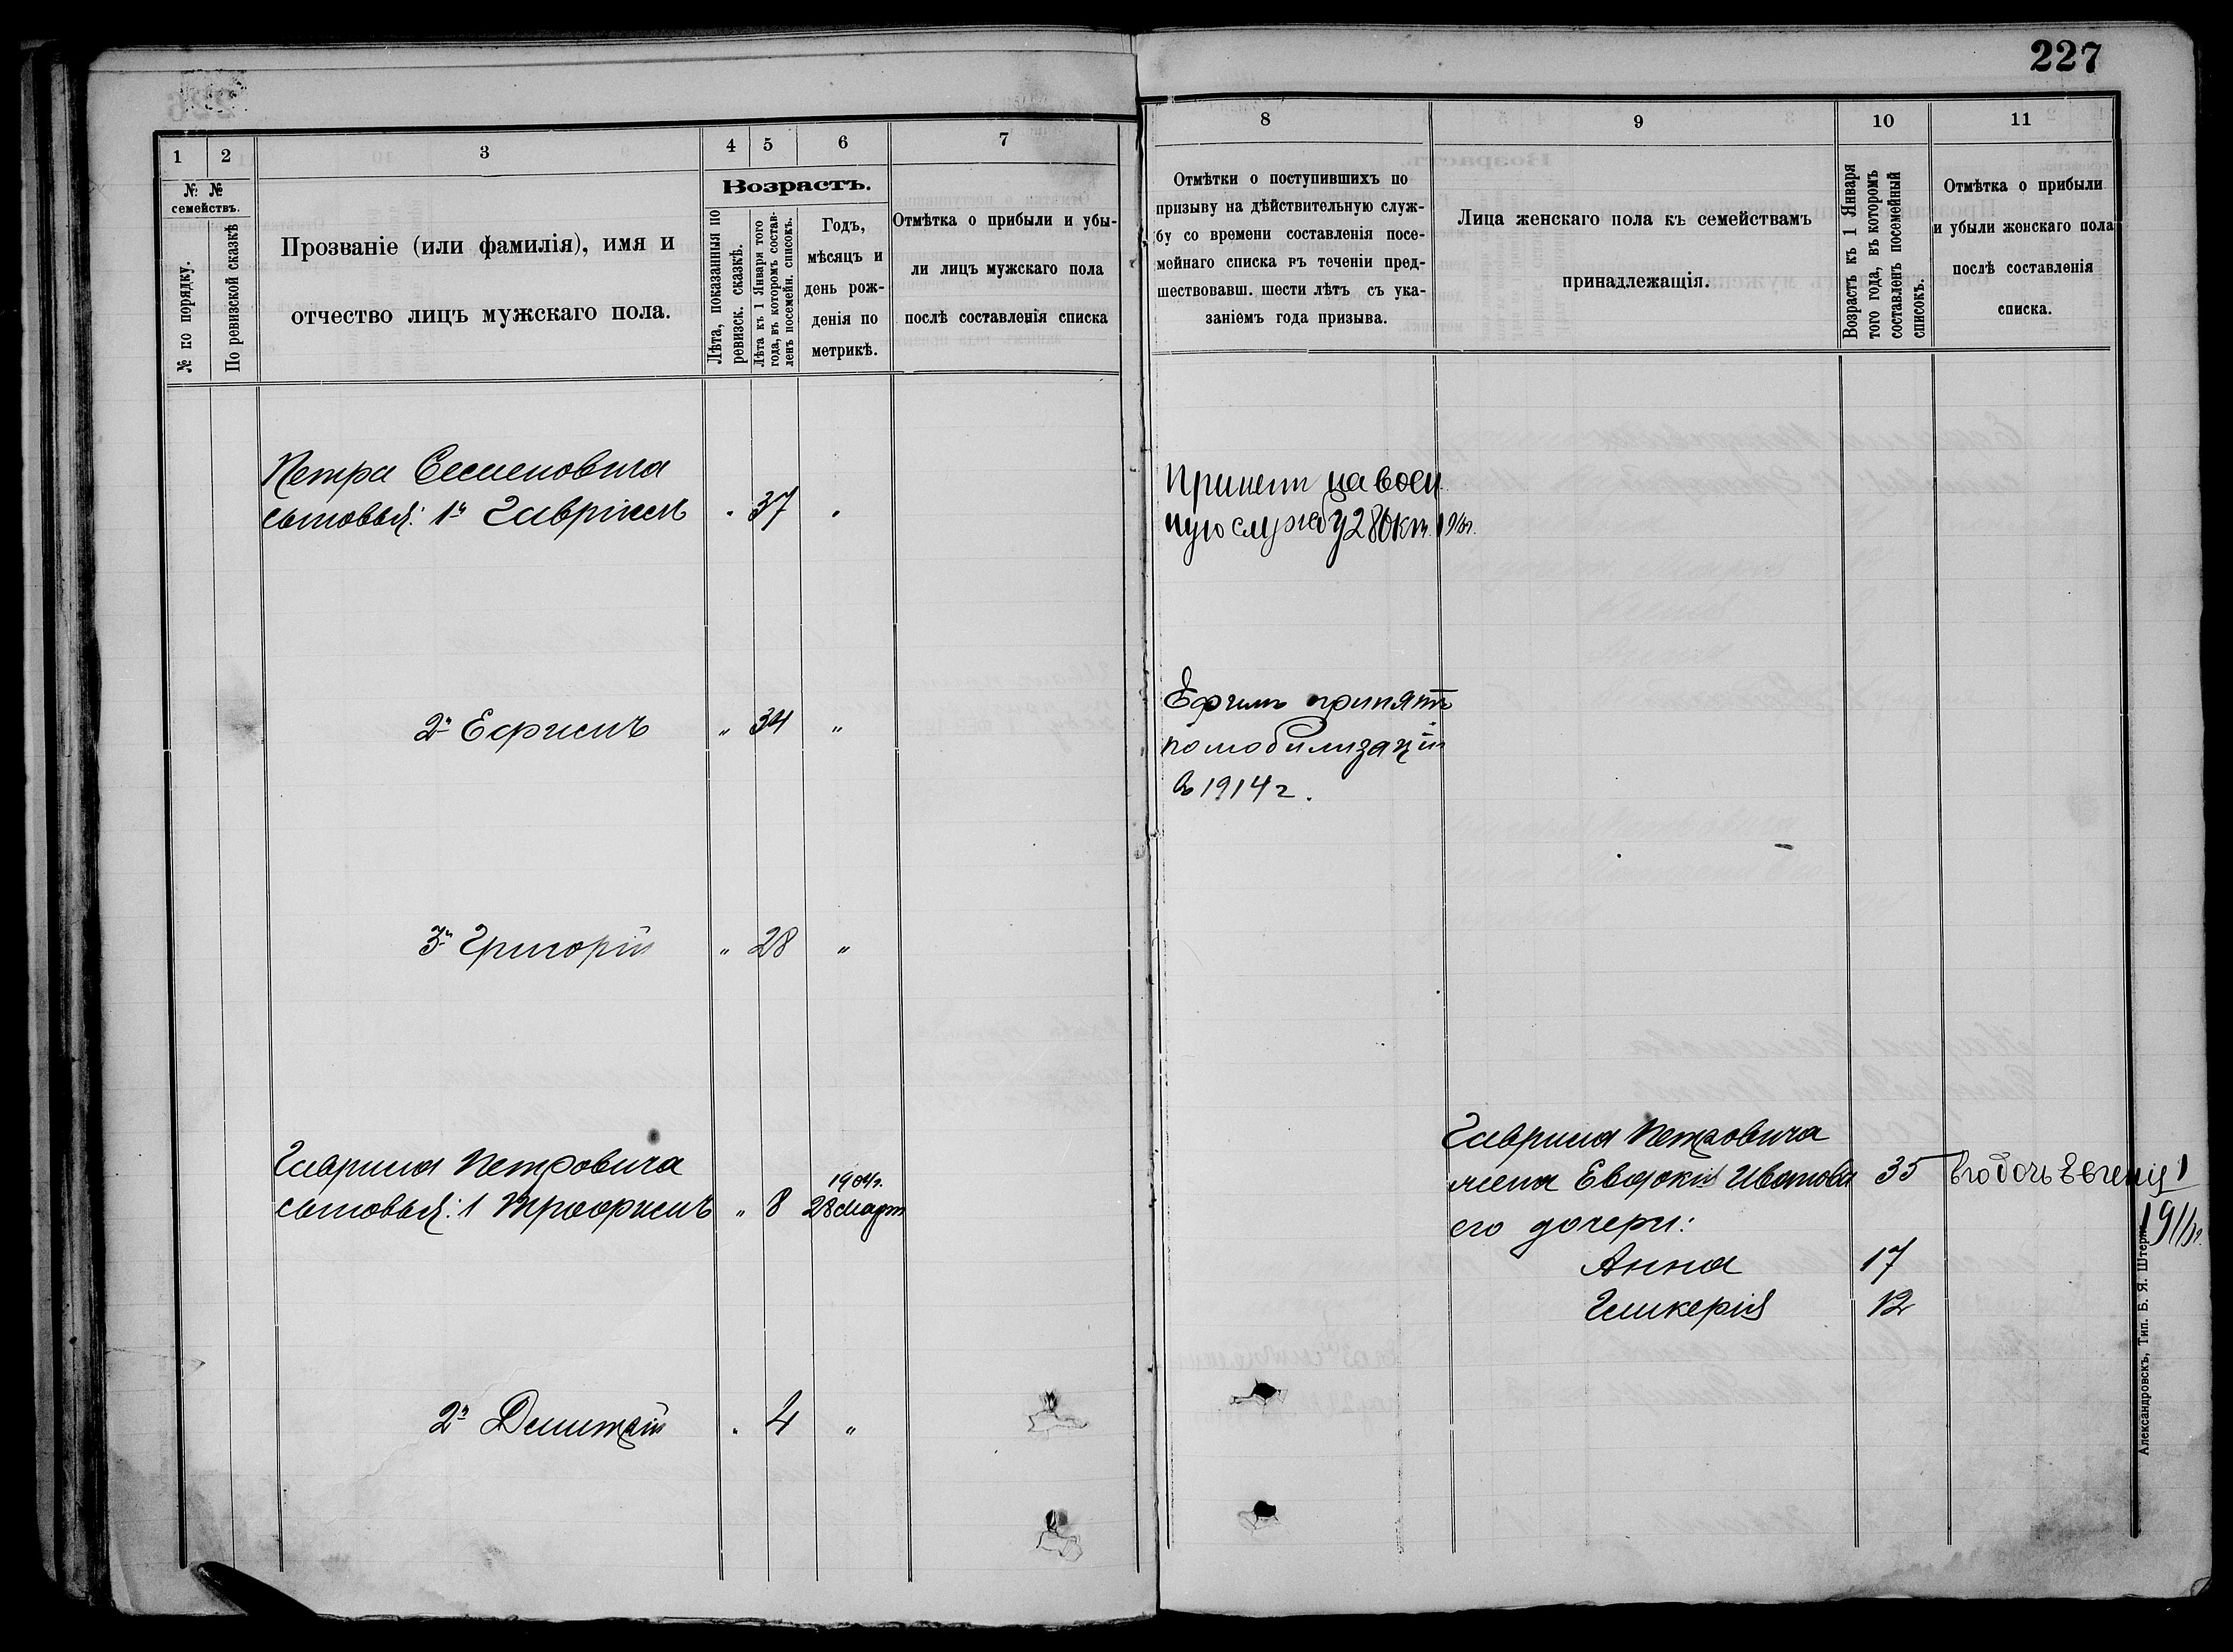 227
1 2 3 4 5 6 7
№ №
семействъ.
№ по порядку.
По ревизской сказкѣ
Прозваніе (или фамилія), имя и
отчество лицъ мужскаго пола.
Возрастъ.
Лѣта, показанныя по
ревизск. сказкѣ.
Лѣта къ 1 Января того
года, въ которомъ состав-
ленъ посемейн. списокъ.
Годъ,
мѣсяцъ и
день рож-
денія по
метрикѣ.
Отмѣтка о прибыли и убы-
ли лицъ мужскаго пола
послѣ составленія списка
Петра Семеновича
сыновья: 1й Гавріилъ . 37 .
2й Ефимъ " 34 "
3й Григорій " 28 "
Гаврила Петровича
1904г.
сыновья: 1 Трофимъ " 8 28 март
2й Дмитрій " 4 "
8 9 10 11
Отмѣтки о поступившихъ по
призыву на дѣйствительную служ-
бу со времени составленія посе-
мейнаго списка въ теченіи пред-
шествовавш. шести лѣтъ съ ука-
заніемъ года призыва.
Лица женскаго пола къ семействамъ
принадлежащія.
Возрастъ къ 1 Января
того года, въ которомъ
составленъ посемейный
списокъ.
Отмѣтка о прибыли
и убыли женскаго пола
послѣ составленія
списка.
Принят на воен
ную службу 28 Окт.
Ефимъ принятъ
по мобилизаціи
в 1914 г.
Гаврила Петровича
жена Евдокія Иванова 35
его дочери:
Анна 17
Гликерія 12
дочь Евгенія 1
Александровскъ, Тип. Б. Я. Штерн